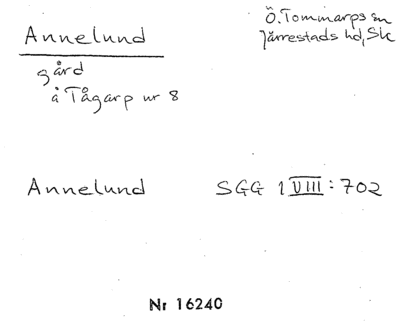 Annelund
Ö. Tommarps sn
Järrestads hd, Sk
gård
å Tågarp nr 8
Annelund SGG 1 VIII: 702
Nr 16240